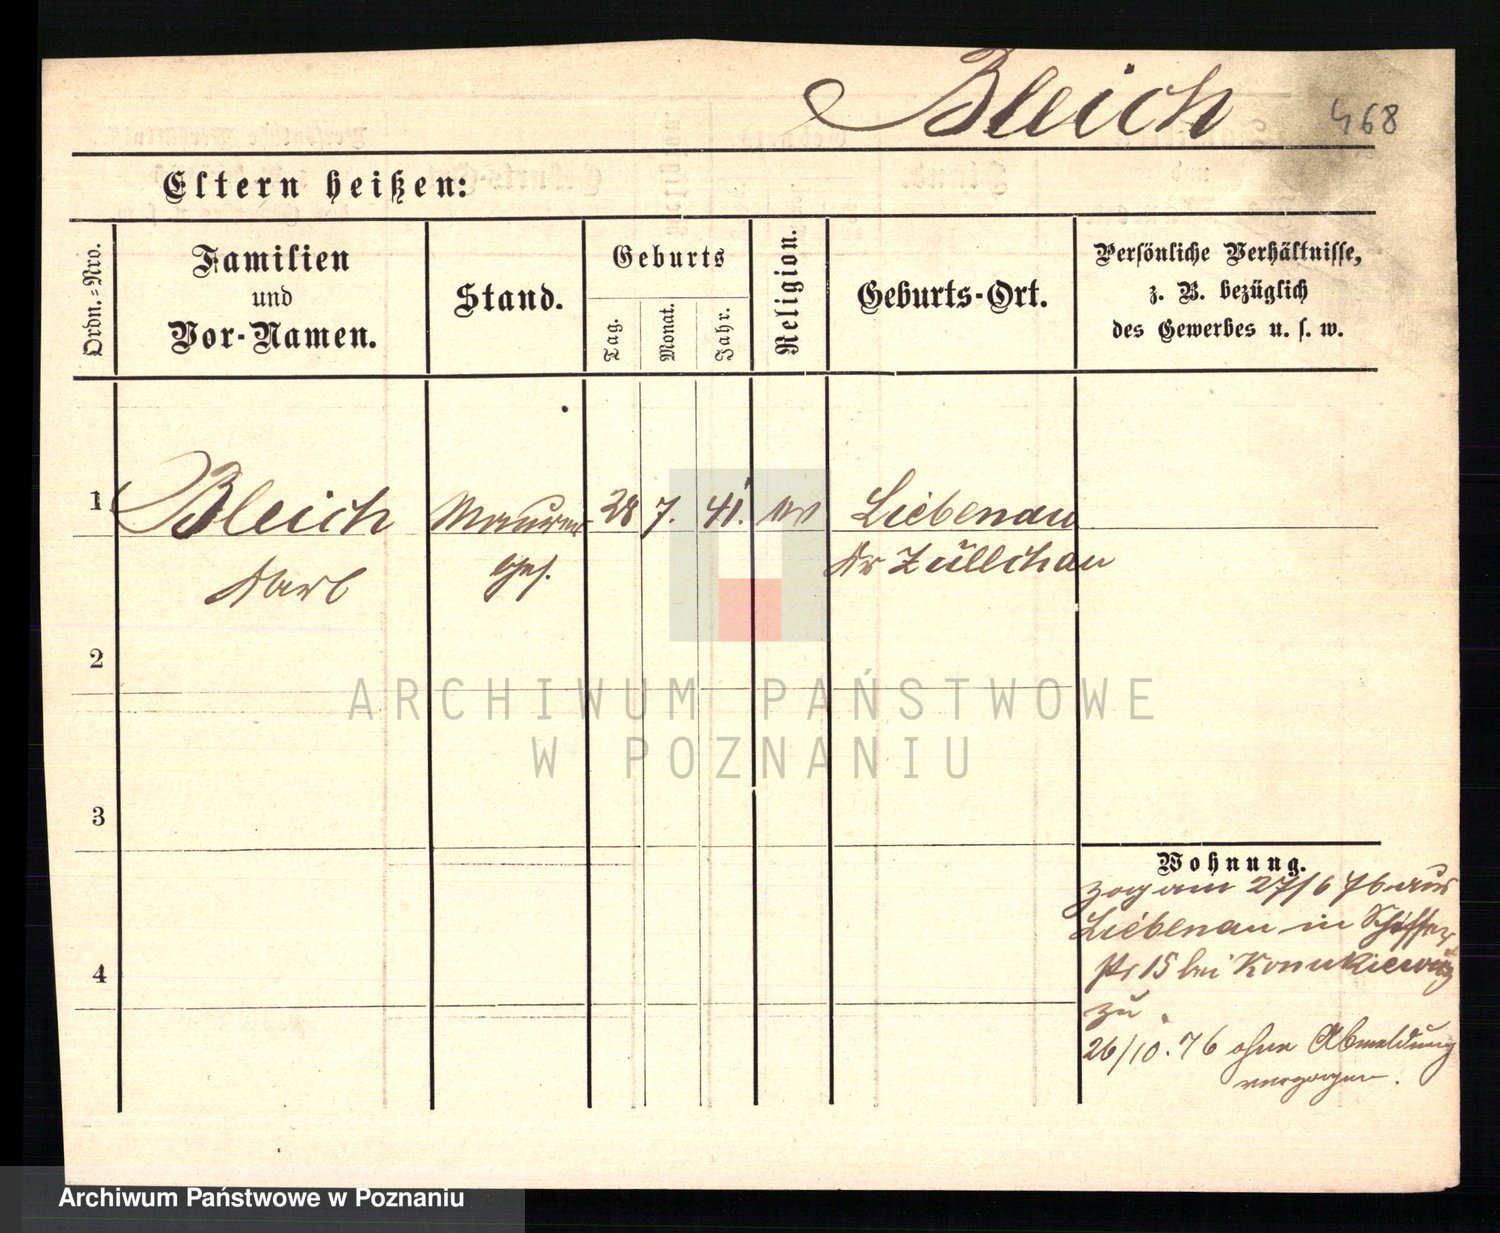 Bleich 468
Eltern heißen:
Ordn.-Nro.
Familien
und
Vor-Namen.
Stand.
Geburts
Tag.
Monat.
Jahr.
Religion.
Geburts-Ort.
Persönliche Verhältnisse,
z. B. bezüglich
des Gewerbes u. s. w.
1 Bleich Maurer 28 7. 41. Liebenau
Karl Ges. Kr Züllichau
2
3
4
Wohnung.
zog am 27/6 76 aus
Liebenau in Schiffer
str 15 bei
zu
26/10.76 ohne Abmeldung
verzogen.
ARCHIWUM PAŃSTWOWE
W POZNANIU
Archiwum Państwowe w Poznaniu